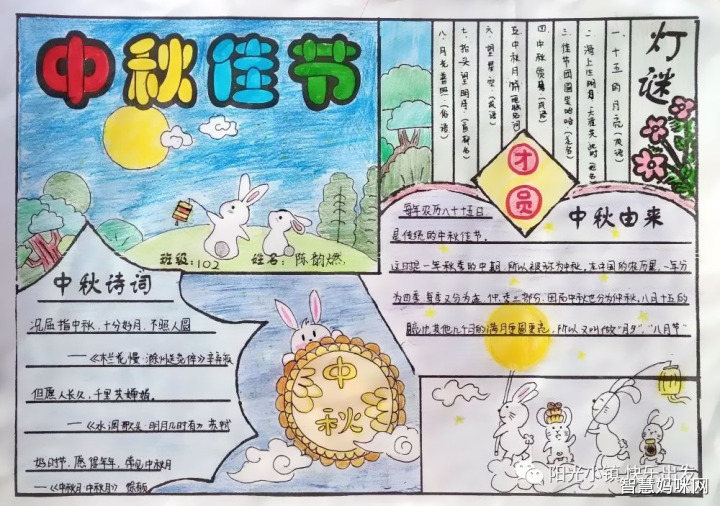 中秋佳节
班级:102 姓名:陈韵燃
灯谜
一.十五的月亮(成语)
二.海上生明月,天涯共此时
三.佳节团圆
四.中秋赏
五.中秋月饼
六.望星空(成语)
七.抬头望明月(
八.月光普照(俗语)
团圆
中秋由来
每年农历八十十五日,
是传统的中秋佳节。
这时是一年秋季的中期,所以被称为中秋,在中国的农历里,一年分
为四季,每季又分为孟、仲、季三部分,因而中秋也分为仲秋,八月十五的
月亮比其他几个月的满月更圆更亮,所以又叫做"月夕""八月节"
中秋诗词
况屈指中秋,十分好月,不照人圆
——《木兰花慢·滁州送范倅》辛弃疾
但愿人长久,千里共婵娟。
——《水调歌头·明月几时有》苏轼
好时节,愿得年年,常见中秋月
——《中秋月·中秋月》徐有贞
中秋
阳光小镇·快乐出发
智慧妈咪网